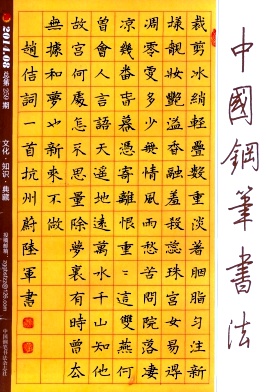 中國鋼筆書法
裁剪冰綃輕疊數重淡著胭脂勻注新
樣靚妝艷溢香融羞殺蕊珠宮女易得
凋零更多少無情風雨愁苦問院落淒
涼幾番春暮憑寄離恨重〻這雙燕何
曾會人言語天遙地遠萬水千山知他
故宮何處怎不思量除夢裏有時曾去
無據和夢也新來不做
趙佶詞一首杭州蔚陸軍書
2014.08 总第250期
文化·知识·典藏